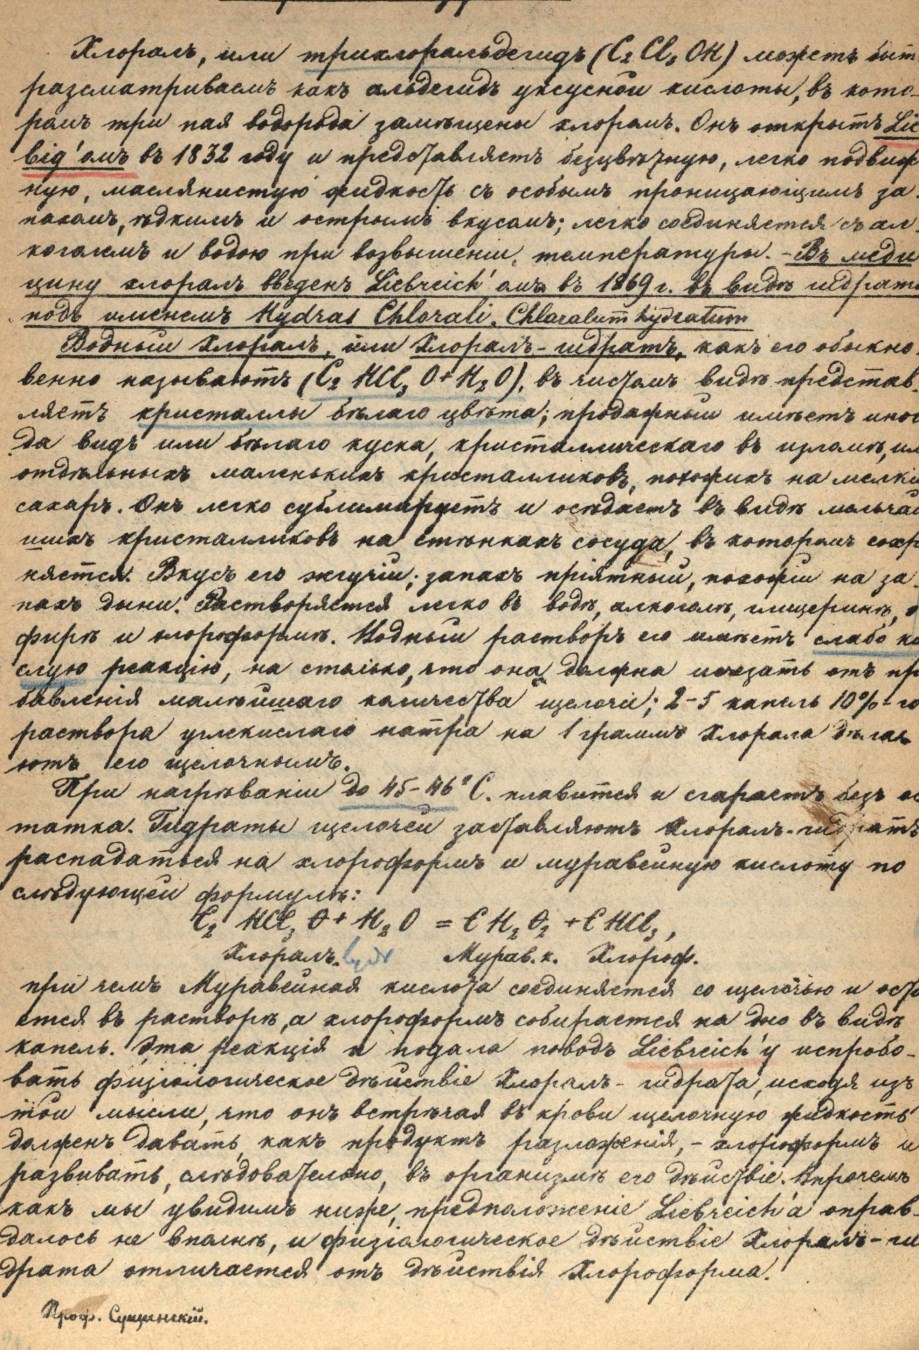 Хлоралъ, или трихлоральдегидъ (C₂ Cl₃ OH) можетъ быт
разсматриваемъ какъ альдегидъ уксусной кислоты, въ кото-
ромъ три пая водорода замѣщены хлоромъ. Онъ открытъ Lie
big'омъ въ 1832 году и представляетъ безцвѣтную, легко подвиж
ную, маслянистую жидкость съ особымъ проницающимъ за-
пахомъ, ѣдкимъ и острымъ вкусомъ; легко соединяется съ ал-
коголемъ и водою при возвышеніи температуры. - Въ меди
цину хлоралъ введенъ Liebreich'омъ въ 1869 г. въ видѣ гидрата
подъ именемъ Hydras Chlorali. Chloralum hydratum
Водный Хлоралъ, или Хлоралъ-гидратъ, какъ его обыкно
венно называютъ (C₂ HCl₃ O + H₂O), въ чистомъ видѣ представ-
ляетъ кристаллы бѣлаго цвѣта; продажный имѣетъ иног
да видъ или бѣлаго куска, кристаллическаго въ изломѣ, ил
отдѣльныхъ маленькихъ кристалликовъ, похожихъ на мелкі
сахаръ. Онъ легко сублимируетъ и осѣдаетъ въ видѣ мельчай
шихъ кристалликовъ на стѣнкахъ сосуда, въ которомъ сохр
няется. Вкусъ его жгучій; запахъ пріятный, похожій на за-
пахъ дыни. Растворяется легко въ водѣ, алкоголѣ, глицеринѣ, э
фирѣ и хлороформѣ. Водный растворъ его имѣетъ слабо ки
слую реакцію, на столько, что она должна исчезать отъ при
бавленія малѣйшаго количества щелочи; 2-5 капель 10%-го
раствора углекислаго натра на 1 граммъ Хлорала дѣла
ютъ его щелочнымъ.
При нагрѣваніи до 45-46° C. плавится и сгараетъ безъ ос
татка. Гидраты щелочей заставляютъ Хлоралъ-гидратъ
распадаться на хлороформъ и муравейную кислоту по
слѣдующей формулѣ:
C₂ HCl₃ O + H₂O = CH₂O₂ + CHCl₃,
Хлоралъ. Мурав. к. Хлороф.
при чемъ Муравейная кислота соединяется со щелочью и оста
ется въ растворѣ, а хлороформъ собирается на дно въ видѣ
капель. Эта реакція и подала поводъ Liebreich'у испробо-
вать физіологическое дѣйствіе Хлоралъ-гидрата, исходя изъ
той мысли, что онъ встрѣчая въ крови щелочную жидкость
долженъ давать, какъ продуктъ разложенія, - хлороформъ и
развивать, слѣдовательно, въ организмѣ его дѣйствіе. Впрочемъ
какъ мы увидимъ ниже, предположеніе Liebreich'а оправ-
далось не вполнѣ, и физіологическое дѣйствіе Хлоралъ-ги
драта отличается отъ дѣйствія Хлороформа.
Проф. Сущинскій.